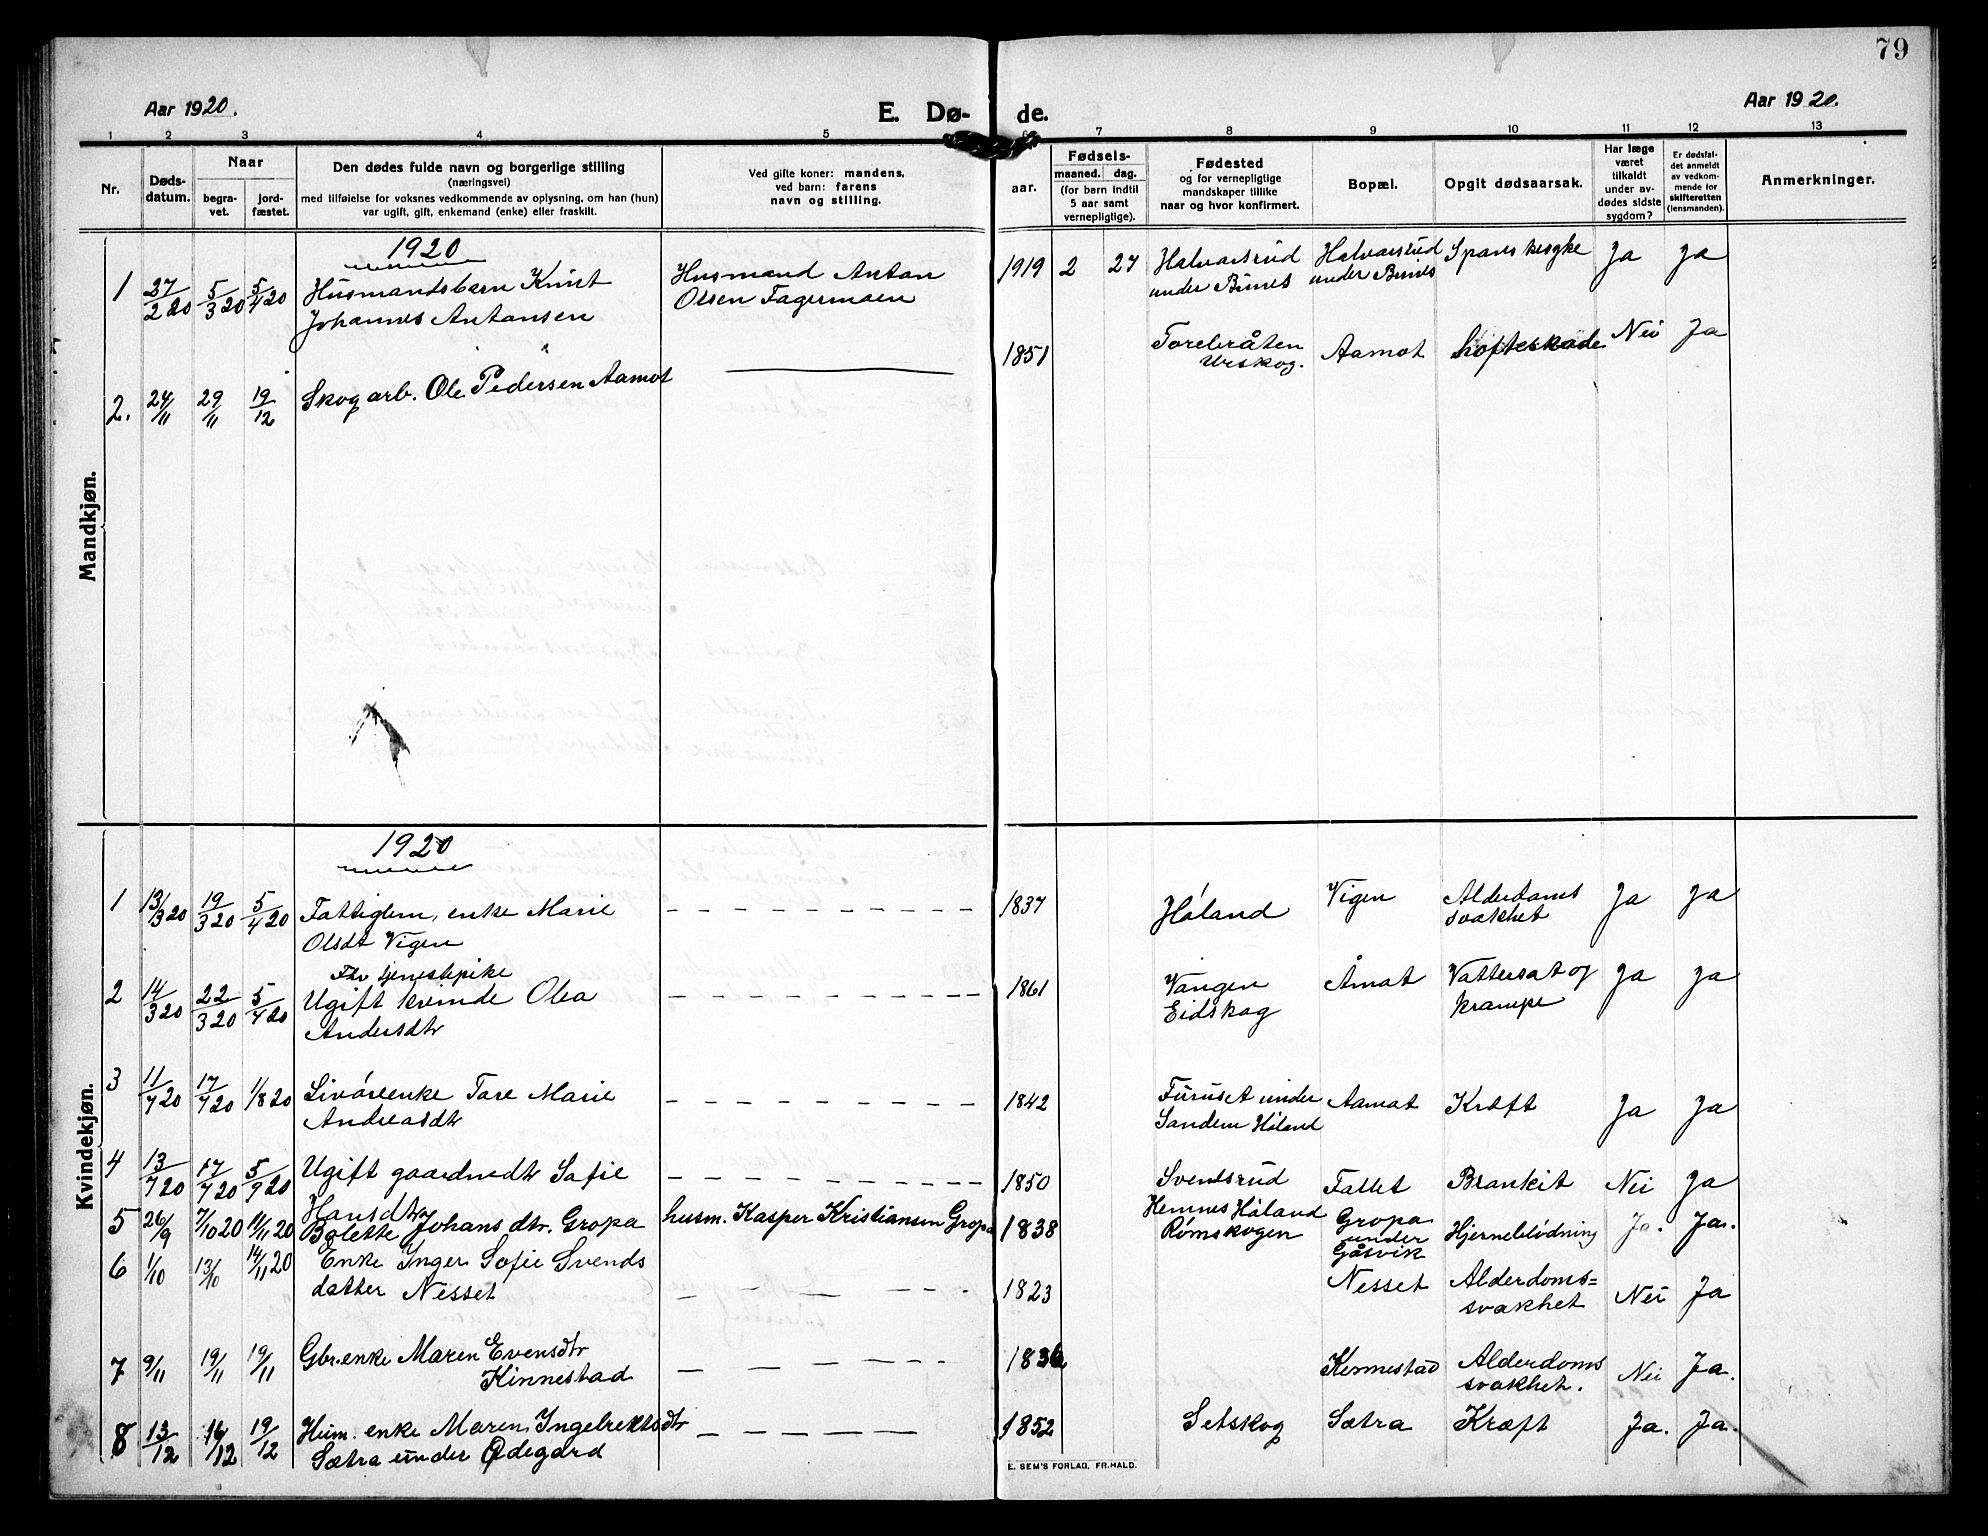 79
Aar 1920.
E. Dø- de.
Aar 1920.
1 2 3 4 5 6 7 8 9 10 11 12 13
Nr.
Døds-
datum.
Naar
begra-
vet.
jord-
fæstet.
Den dødes fulde navn og borgerlige stilling
(næringsvei)
med tilføielse for voksnes vedkommende av oplysning, om han (hun)
var ugift, gift, enkemand (enke) eller fraskilt.
Ved gifte koner: mandens,
ved barn: farens
navn og stilling.
aar.
Fødsels-
maaned. dag.
(for barn indtil
5 aar samt
vernepligtige).
Fødested
og for vernepligtige
mandskaper tillike
naar og hvor konfirmert.
Bopæl.
Opgit dødsaarsak.
Har læge
været
tilkaldt
under av-
dødes sidste
sygdom?
Er dødsfal-
det anmeldt
av vedkom-
mende for
skifteretten
(lensmanden).
Anmerkninger.
Mandkjøn.
1920
1 27/2 20 5/3 20 5/4 20 Husmandsbarn Knut Husmand Anton 1919 2 27 Halvarsrud Halvarsrud Spansksyke Ja Ja
Johannes Antonsen Olsen Fagermoen under Bunes under Bunes
2. 24/11 29/11 19/12 Skogarb. Ole Pedersen Aamot 1851 Torebråten Aamot hofteskade Nei Ja
Urskog.
Kvindekjøn.
1920
1 13/3 20 19/3 20 5/4 20 Fattiglem, enke Marie 1837 Høland Vigen Alderdoms Ja Ja
Olsdt Vigen svakhet
Fhv tjenestepike
2 14/3 20 22/3 20 5/4 20 Ugift kvinde Olea 1861 Vangen Åmot Vattersot og Ja Ja
Andersdtr Eidskog krampe
3 11/7 20 17/7 20 1/8 20 Livørenke Tore Marie 1842 Furuset under Aamot Kræft Ja Ja
Andreasdtr Sandem Høland
4 13/7 20 17/7 20 5/9 20 Ugift gaardmdtr Sofie 1850 Svendsrud Fallet Bronkit Nei Ja
Hansdtr Hemnes Høland
5 26/9 7/10 20 14/11 20 Bolette Johansdtr. Gropa husm. Kasper Kristiansen Gropa 1838 Rømskogen Gropa Hjerneblødning Ja. Ja.
under
Gåsvik
6 1/10 13/10 14/11 20 Enke Inger Sofie Svends 1823 Nesset Alderdoms= Nei Ja
datter Nesset svakhet
7 9/11 19/11 19/11 Gbr.enke Maren Evensdtr 1836 Kinnestad Alderdoms Nei Ja.
Kinnestad svakhet.
8 13/12 19/12 Hum. enke Maren Ingebrektsdtr 1852 Setskog Sætra Kræft Ja. Ja.
Sætra under Ødegard
E. SEM'S FORLAG, FR.HALD.